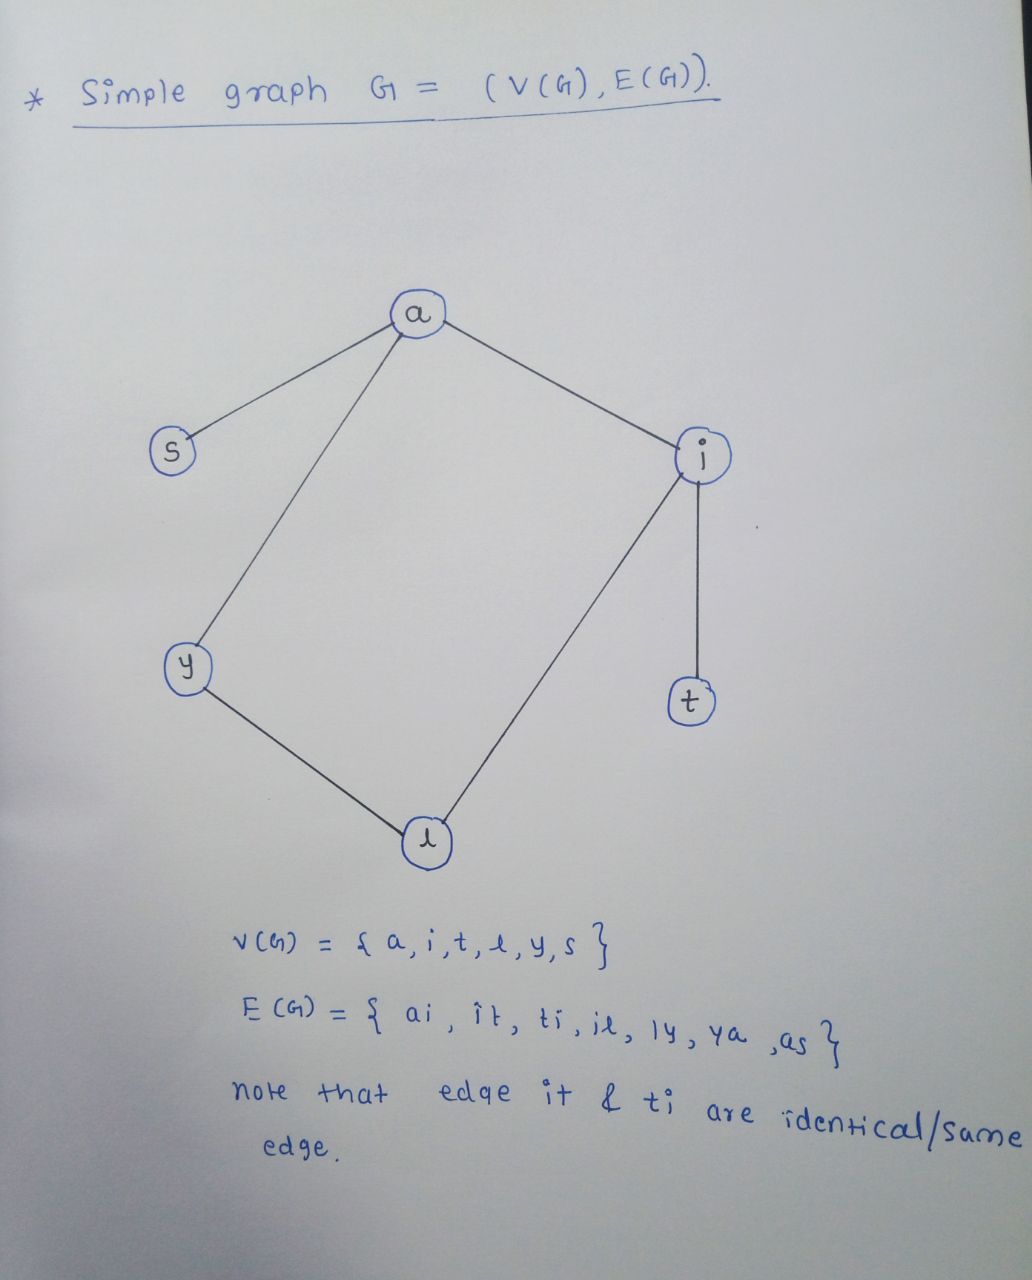 * Simple graph G = (V(G), E(G)).
a
s
i
y
t
l
V(G) = { a, i, t, l, y, s }
E(G) = { ai, it, ti, il, ly, ya, as }
note that edge it & ti are identical/same
edge.